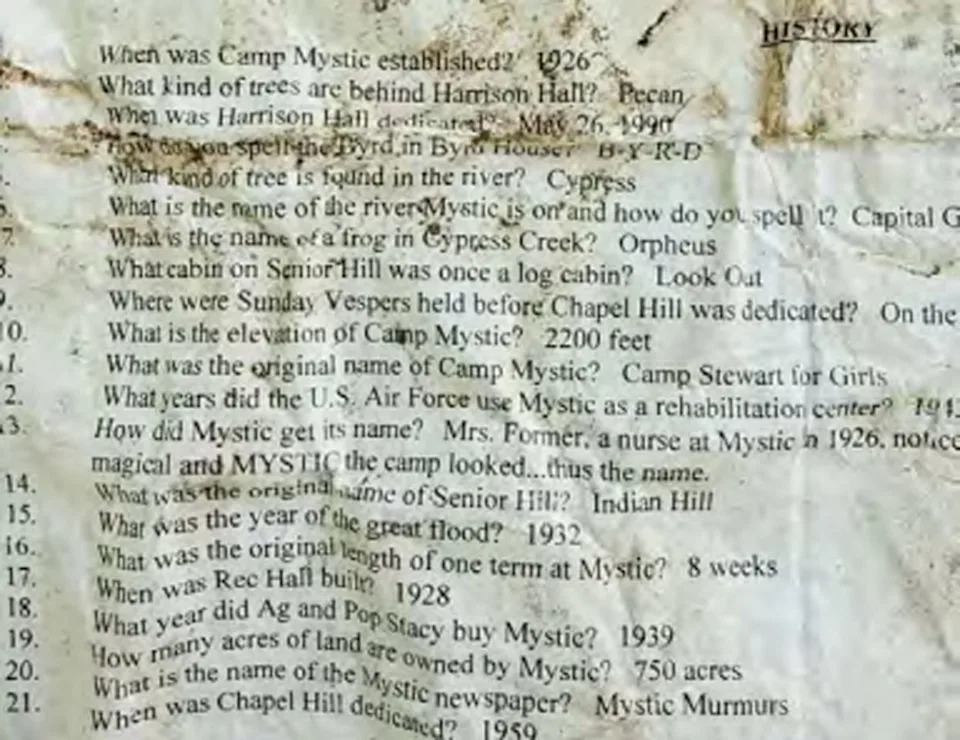 HISTORY
When was Camp Mystic established? 1926
What kind of trees are behind Harrison Hall? Pecan
When was Harrison Hall dedicated? May 26, 1990
How do you spell the Byrd in Byrd House? B-Y-R-D
What kind of tree is found in the river? Cypress
What is the name of the river Mystic is on and how do you spell it? Capital G
7. What is the name of a frog in Cypress Creek? Orpheus
8. What cabin on Senior Hill was once a log cabin? Look Out
9. Where were Sunday Vespers held before Chapel Hill was dedicated? On the
10. What is the elevation of Camp Mystic? 2200 feet
1. What was the original name of Camp Mystic? Camp Stewart for Girls
2. What years did the U.S. Air Force use Mystic as a rehabilitation center?
3. How did Mystic get its name? Mrs. Former, a nurse at Mystic in 1926, notice
magical and MYSTIC the camp looked...thus the name.
14. What was the original name of Senior Hill? Indian Hill
15. What was the year of the great flood? 1932
16. What was the original length of one term at Mystic? 8 weeks
17. When was Rec Hall built? 1928
18. What year did Ag and Pop Stacy buy Mystic? 1939
19. How many acres of land are owned by Mystic? 750 acres
20. What is the name of the Mystic newspaper? Mystic Murmurs
21. When was Chapel Hill dedicated? 1959